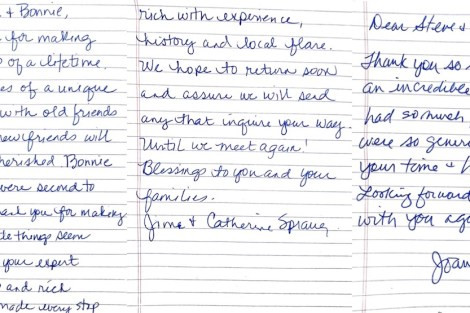 + Bonnie,
for making
of a lifetime.
es of a unique
with old friends
new friends will
herished. Bonnie
were second to
ank you for making
le things seem
your expert
and rich
made every step
rich with experience,
history and local flare.
We hope to return soon
and assure we will send
any that inquire your way.
Until we meet again!
Blessings to you and your
families.
Jim + Catherine
Dear Steve +
Thank you so
an incredible
had so much
were so gener
your time +
Looking forward
with you aga
Joan